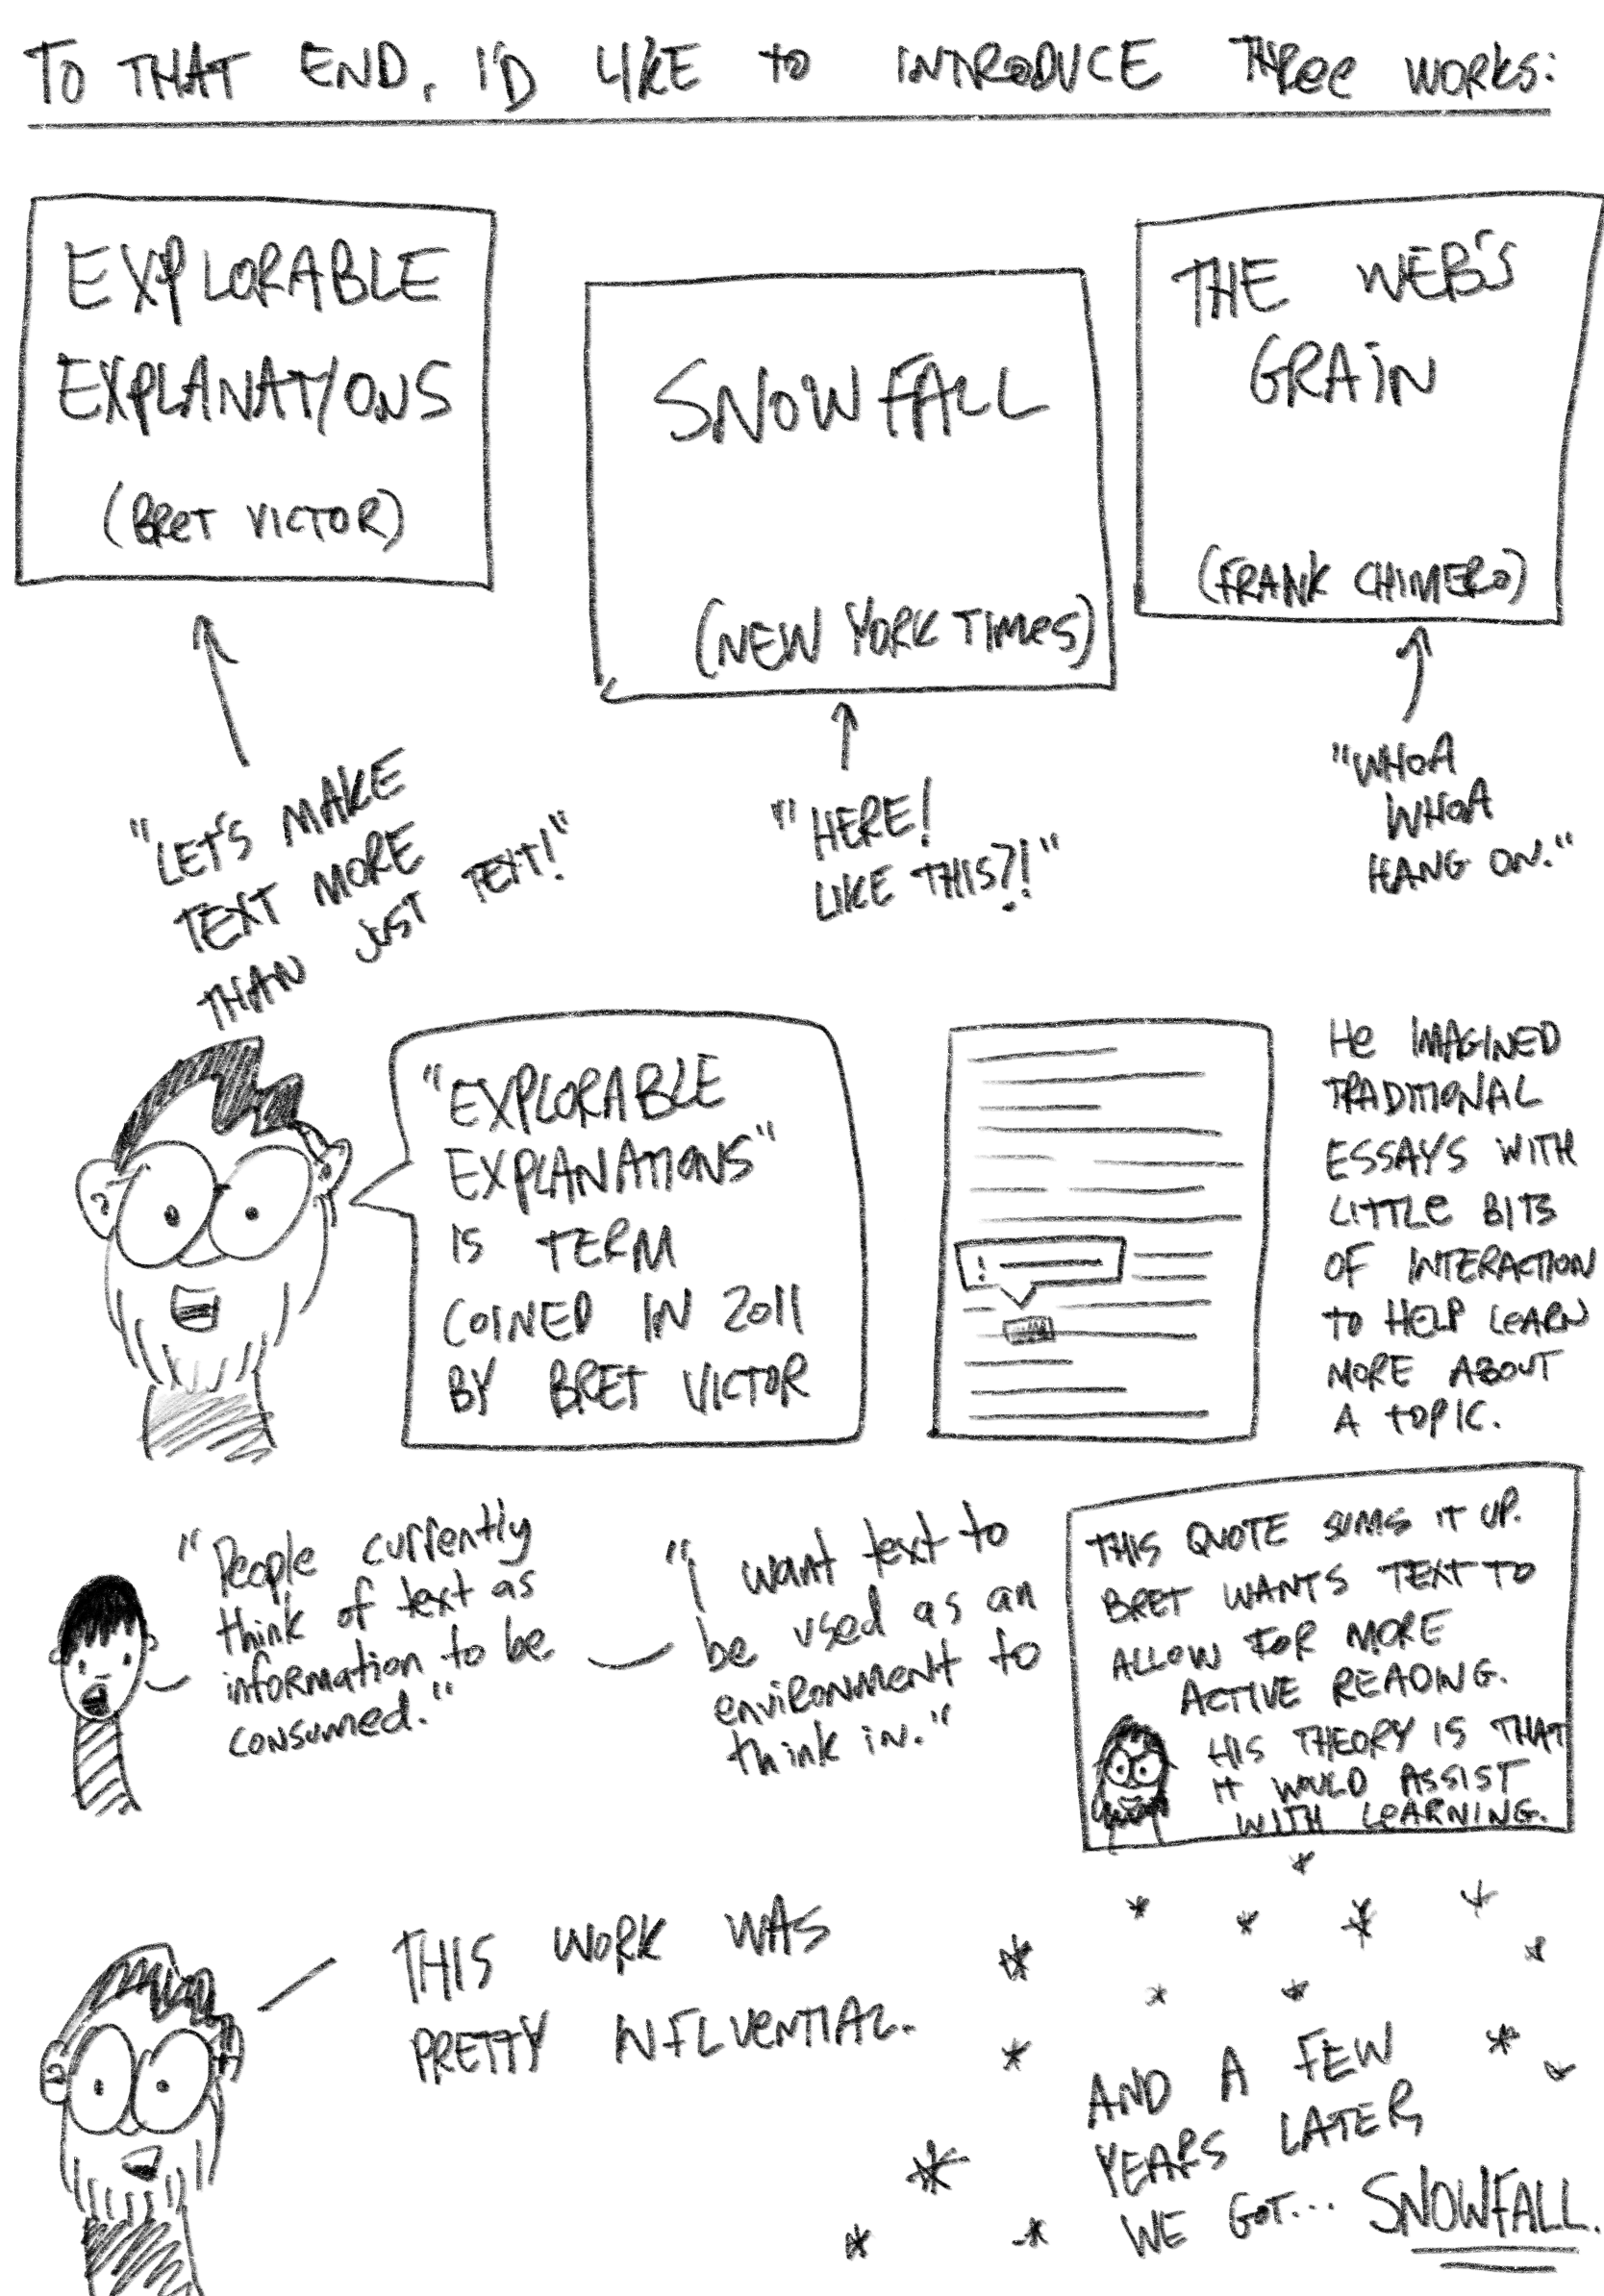 TO THAT END, I'D LIKE TO INTRODUCE THREE WORKS:
EXPLORABLE
EXPLANATIONS
(BRET VICTOR)
SNOWFALL
(NEW YORK TIMES)
THE WEB'S
GRAIN
(FRANK CHIMERO)
"LET'S MAKE
TEXT MORE
THAN JUST TEXT!"
"HERE!
LIKE THIS?!"
"WHOA
WHOA
HANG ON."
"EXPLORABLE
EXPLANATIONS"
IS TERM
COINED IN 2011
BY BRET VICTOR
!
HE IMAGINED
TRADITIONAL
ESSAYS WITH
LITTLE BITS
OF INTERACTION
TO HELP LEARN
MORE ABOUT
A TOPIC.
"People currently
think of text as
information to be
consumed."
"I want text to
be used as an
environment to
think in."
THIS QUOTE SUMS IT UP.
BRET WANTS TEXT TO
ALLOW FOR MORE
ACTIVE READING.
HIS THEORY IS THAT
IT WOULD ASSIST
WITH LEARNING.
THIS WORK WAS
PRETTY INFLUENTIAL.
AND A FEW
YEARS LATER,
WE GOT... SNOWFALL.